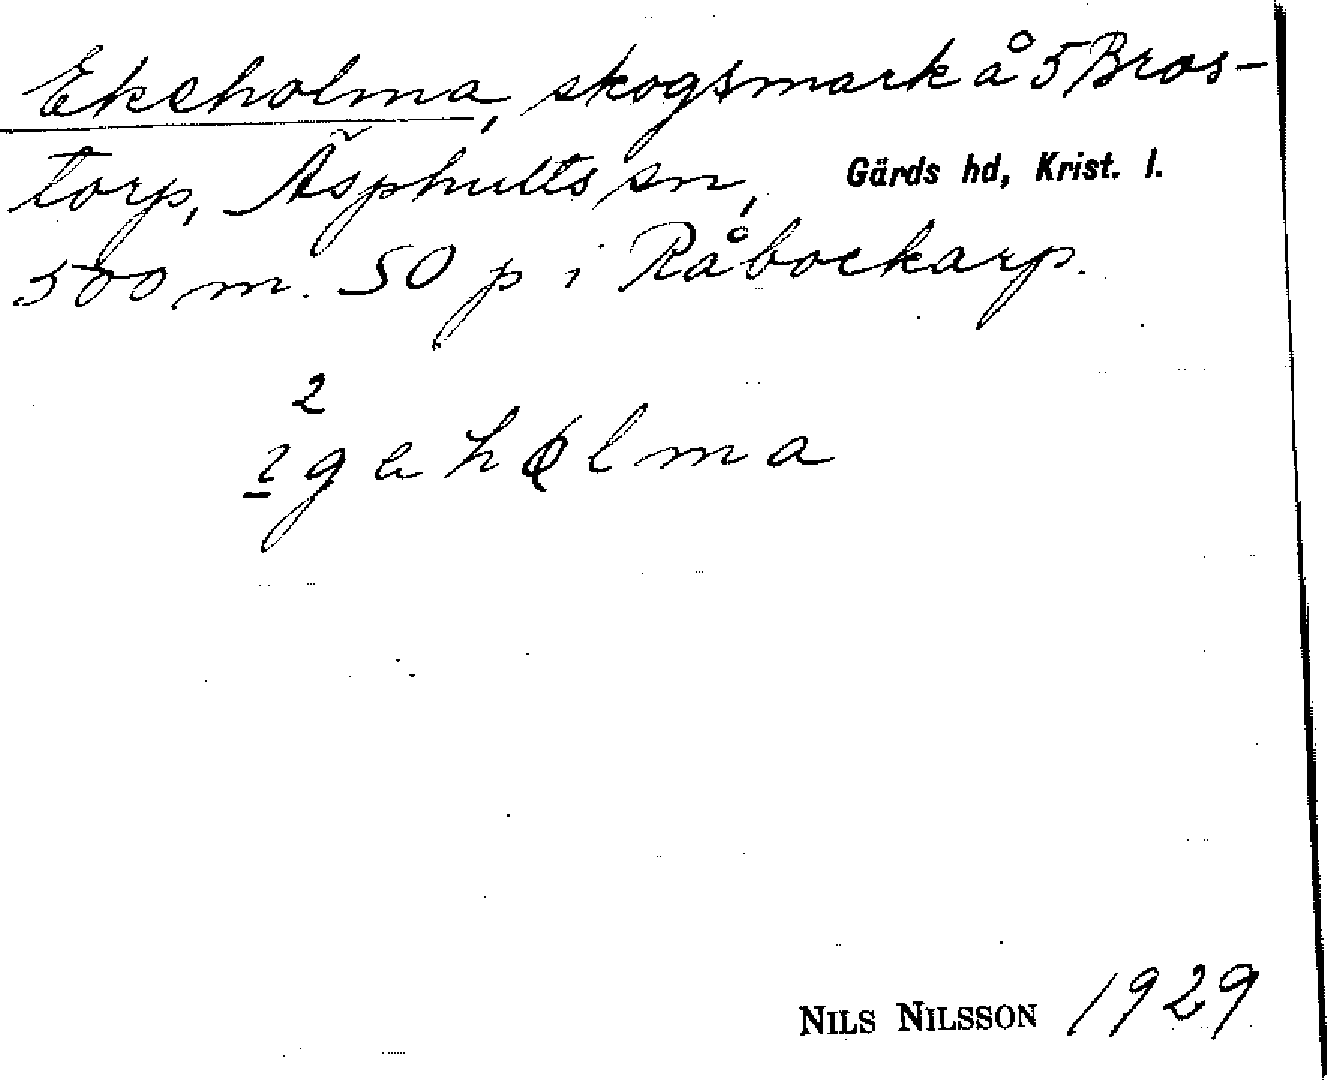 Ekeholma, skogsmark å 5 Bros-
torp, Äsphults sn, Gärds hd, Krist. l.
500 m. SO p i Råbockarp.
2
gahølma
NILS NILSSON 1929